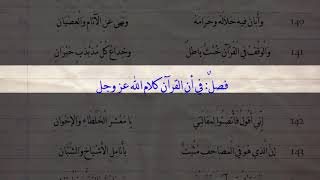 وَأَبَانَ فِيهِ حَلَالَهُ وَحَرَامَهُ وَنَهَى عَنِ الْآثَامِ وَالْعِصْيَانِ 140
وَالْوَقْفُ فِي الْقُرْآنِ خُبْثٌ بَاطِلٌ وَخِدَاعُ كُلِّ مُذَبْذَبٍ حَيْرَانِ 141
فصلٌ: في أن القرآن كلام الله عز وجل
إِنِّي أَقُولُ فَأَنْصِتُوا لِمَقَالَتِي يَا مَعْشَرَ الْخُلَطَاءِ وَالْإِخْوَانِ 142
إِنَّ الَّذِي هُوَ فِي الْمَصَاحِفِ مُثْبَتٌ بِأَنَامِلِ الْأَشْيَاخِ وَالشُّبَّانِ 143